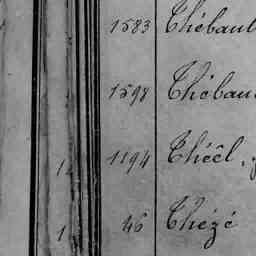 1583 Thébaul
1598 Thébau
1194 Théêl,
46 Thézé